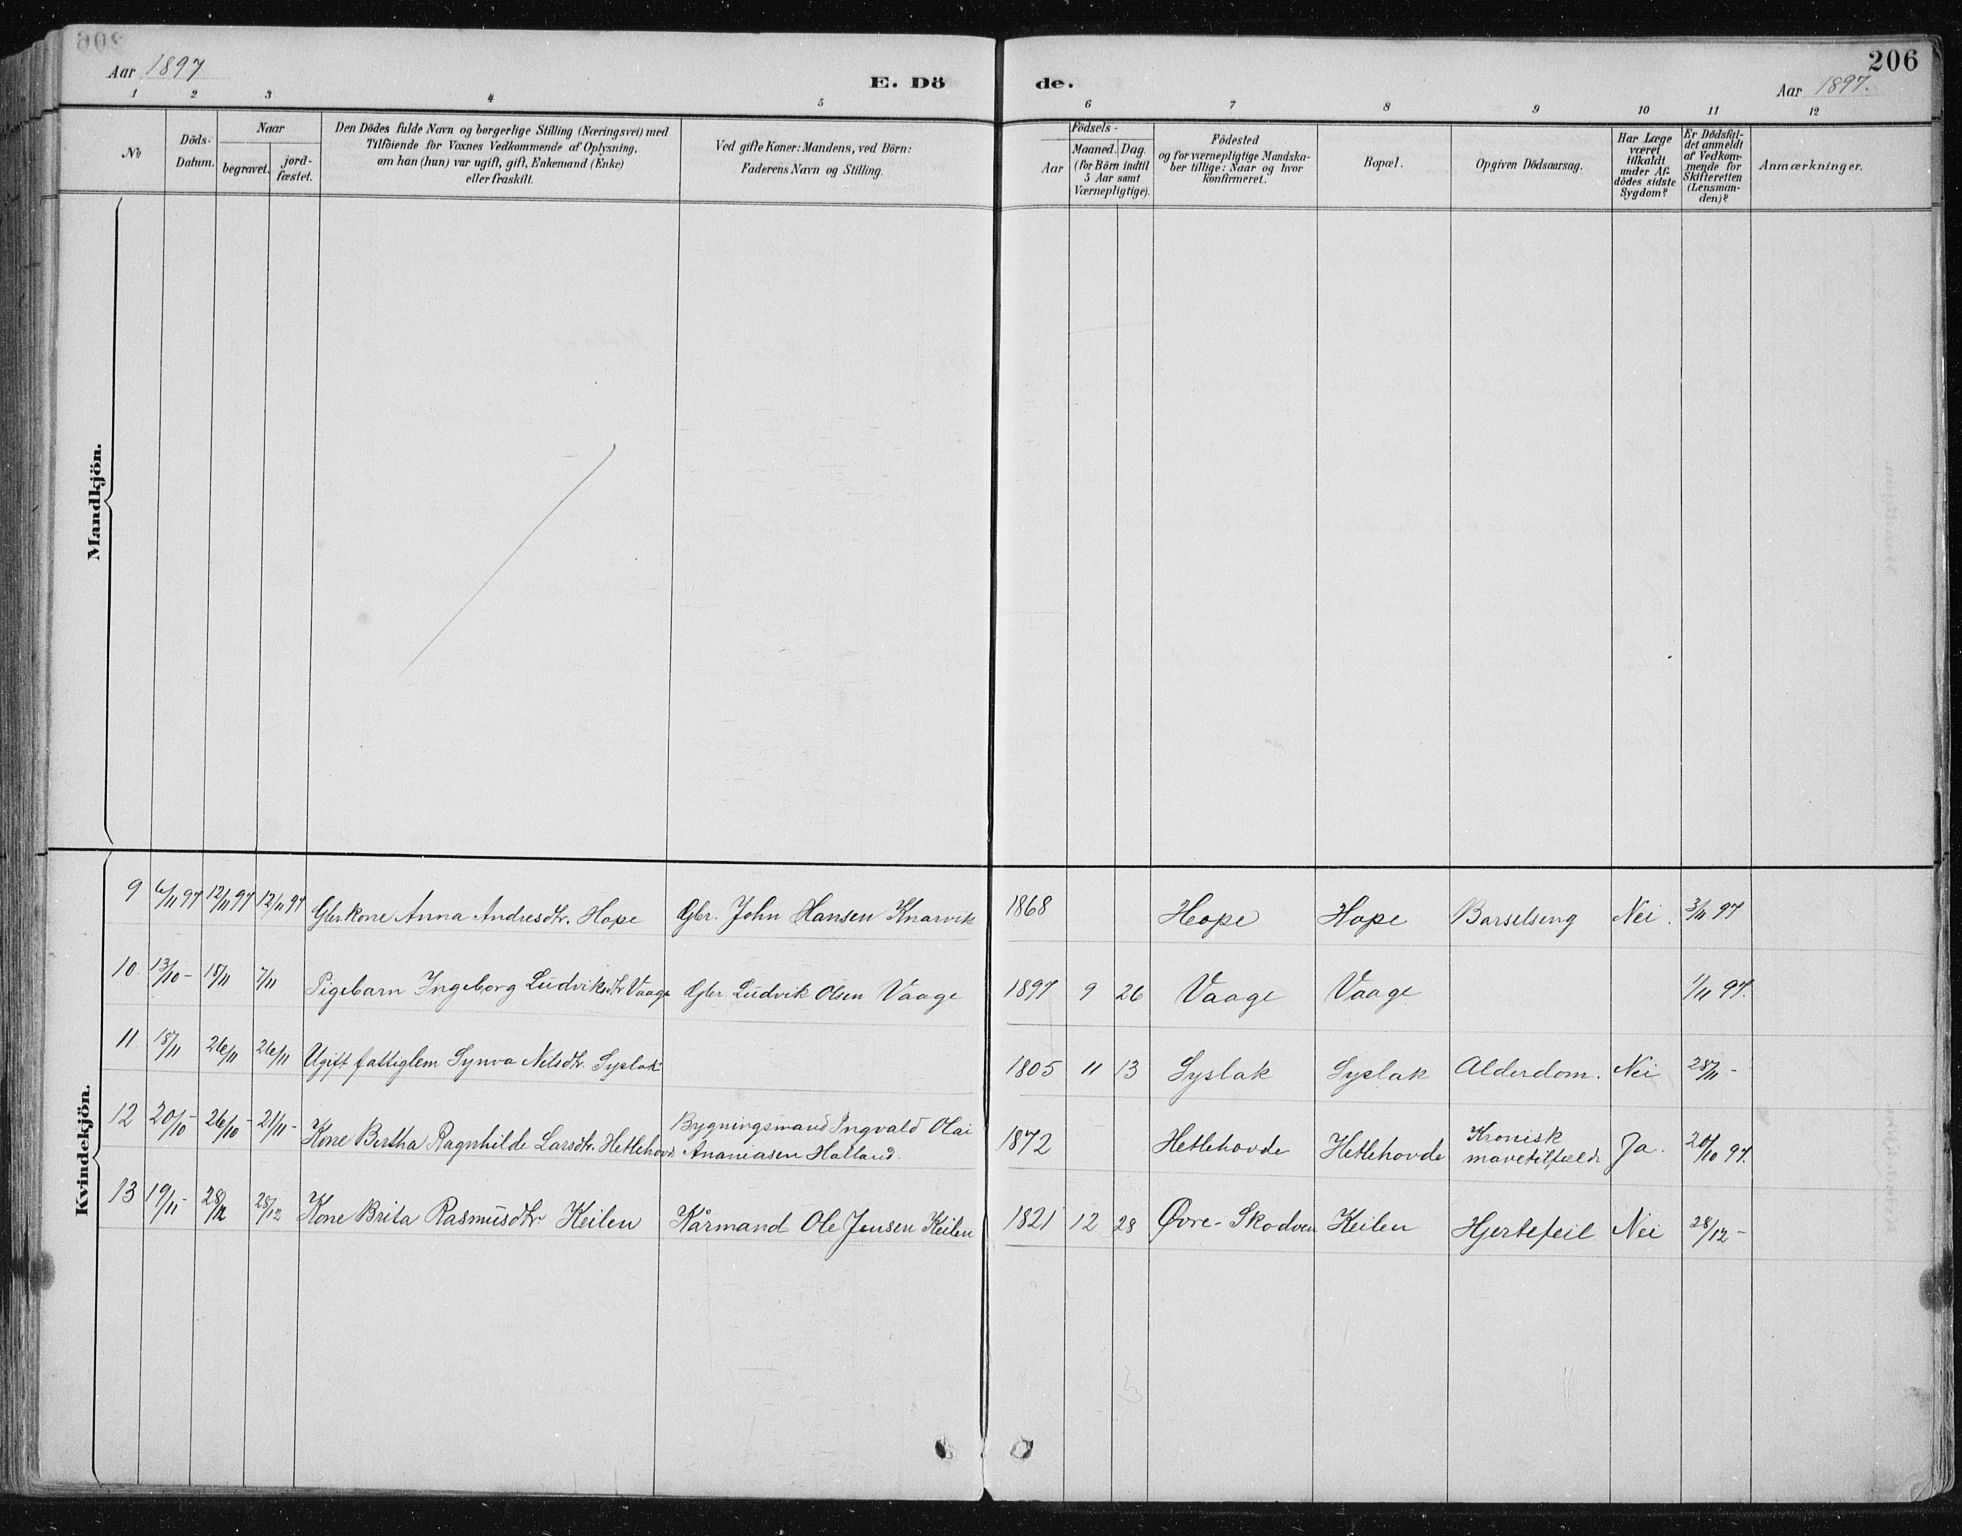 206
Aar 1897
E. Dö de.
Aar 1897.
1 2 3 4 5 6 7 8 9 10 11 12
No
Döds-
Datum.
Naar
begravet.
jord-
fæstet.
Den Dödes fulde Navn og borgerlige Stilling (Næringsvei) med
Tilföiende for Voxnes Vedkommende af Oplysning,
om han (hun) var ugift, gift, Enkemand (Enke)
eller fraskilt.
Ved gifte Koner: Mandens, ved Börn:
Faderens Navn og Stilling.
Födsels-
Aar
Maaned. Dag.
(for Börn indtil
5 Aar samt
Værnepligtige).
Födested
og for værnepligtige Mandska-
ber tillige: Naar og hvor
konfirmeret.
Bopæl.
Opgiven Dödsaarsag.
Har Læge
været
tilkaldt
under Af-
dödes sidste
Sygdom?
Er Dödsfal-
det anmeldt
af Vedkom-
mende for
Skifteretten
(Lensman-
den)?
Anmærkninger.
Mandkjön.
Kvindekjön.
9 6/11 97 12/11 97 12/11 97 Gbr kone Anna Andresdtr. Hope Gbr. John Hansen Knarvik 1868 Hope Hope Barselseng Nei. 3/11 97
10 13/10- 18/11 7/11 Pigebarn Ingeborg Ludviksdtr Vaage Gbr Ludvik Olsen Vaage 1897 9 26 Vaage Vaage 1/11 97.
11 18/11 26/11 26/11 Ugift fattiglem Synva Nilsdtr. Syslak 1805 11 13 Syslak Syslak Alderdom. Nei 28/11 -
12 20/10- 26/10- 21/11- Kone Bertha Ragnhilde Larsdtr. Hetlehovd Bygningsmand Ingvald Olai
Ananiasen Hatland. 1872 Hetlehovde Hetlehovde Kronisk
mavetilfælde Ja. 20/10 97.
13 19/11- 28/12 28/12 Kone Brita Rasmusdtr Keilen Kårmand Ole Jensen Keilen 1821 12 28 Øvre-Skodven Keilen Hjertefeil Nei 28/12-